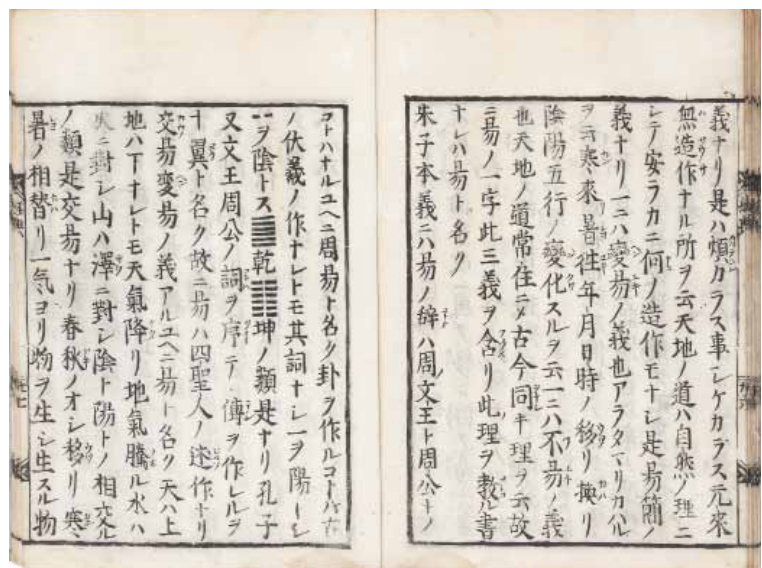 義ナリ是ハ煩カラス事シケカラス元來
無造作ナル所ヲ云天地ノ道ハ自然ノ理ニ
シテ安ラカニ何ノ造作モナシ是易簡ノ
義ナリ一ニハ變易ノ義也アラタマリカハル
ヲ云寒來暑往年月日時ノ移リ換リ
陰陽五行ノ變化スルヲ云一ニハ不易ノ義
也天地ノ道常住ニメ古今同キ理ヲ云故
ニ易ノ一字此三義ヲ含リ此理ヲ教ル書
ナレハ易ト名ク
朱子本義ニハ易ノ辞ハ周文王ト周公ナノ
コトハナルユヘニ周易ト名ク卦ヲ作ルコトハ
ノ伏羲ノ作ナレトモ其詞ナシ一ヲ陽トシ
--ヲ陰トス䷀乾䷁坤ノ類是ナリ孔子
又文王周公ノ詞ヲ序テ傳ヲ作レルヲ
十翼ト名ク故ニ易ハ四聖人ノ述作ナリ
交易變易ノ義アルユヘニ易ト名ク天ハ上
地ハ下ナレトモ天氣降リ地氣騰ル水ハ
火ニ對シ山ハ澤ニ對シ陰ト陽トノ相交ル
ノ類是交易ナリ春秋ノオシ移リ寒
暑ノ相替リ一気ヨリ物ヲ生シ生スル物